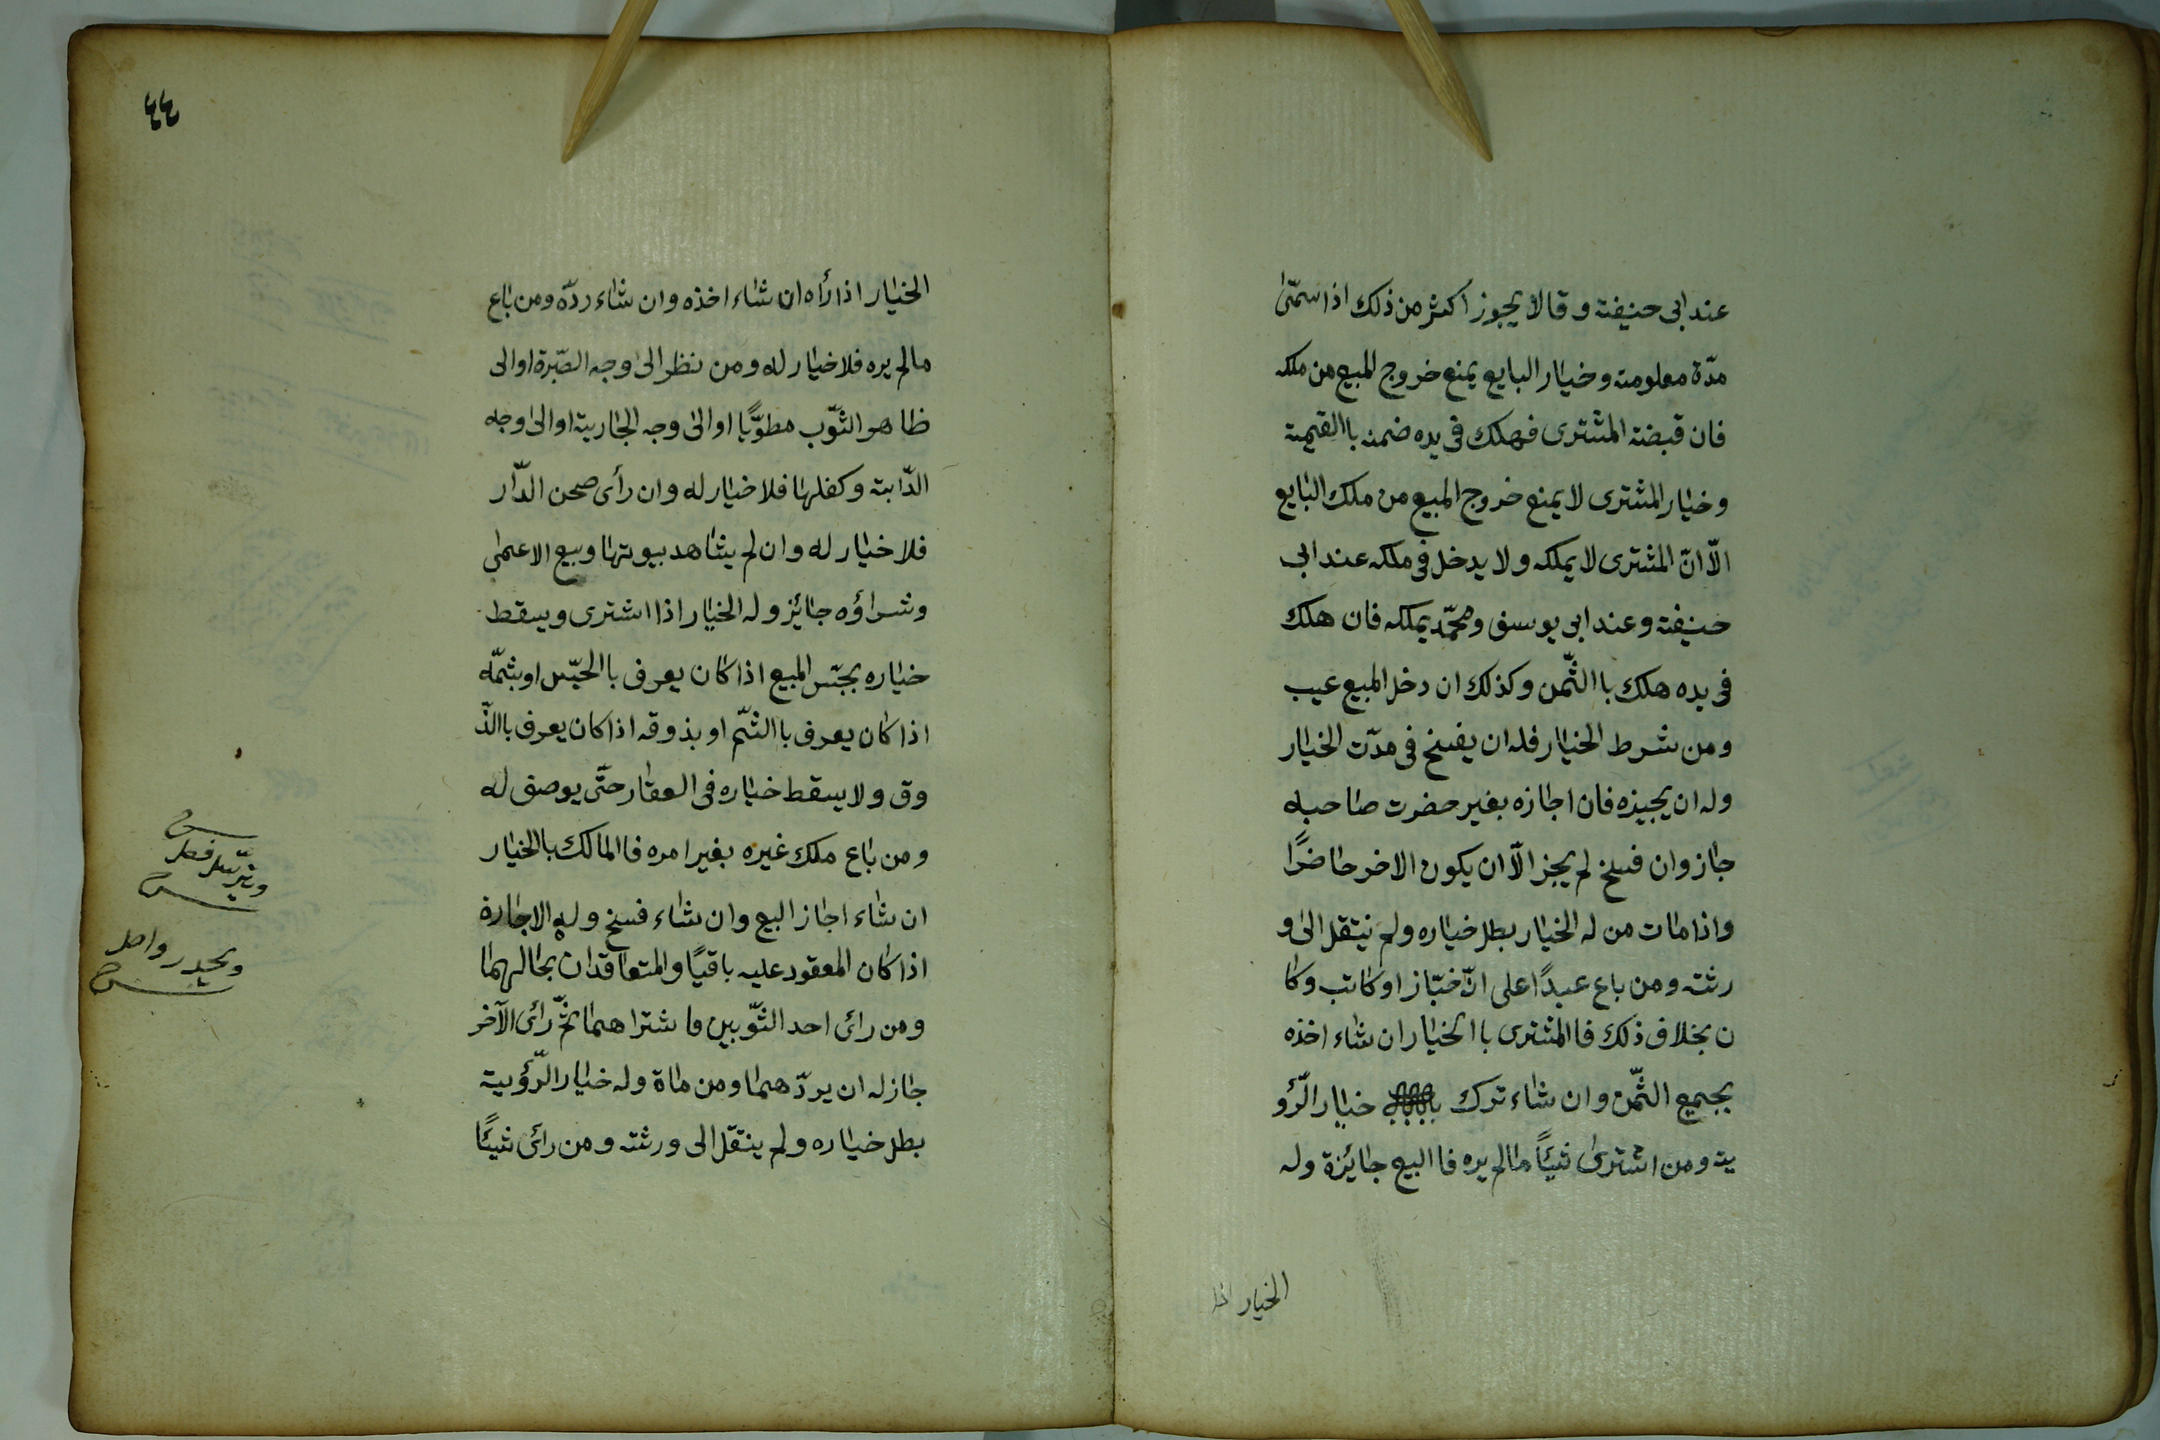 عند ابى حنيفة وقالا يجوز اكثر من ذلك اذا سمّى
مدّة معلومة وخيار البايع يمنع خروج المبيع من ملكه
فان قبضته المشترى فهلك فى يده ضمنه باالقيمة
وخيار المشترى لا يمنع خروج المبيع من ملك البايع
الّا انّ المشترى لا يملكه ولا يدخل فى ملكه عند ابى
حنيفة وعند ابى يوسف ومحمّد يملكه فان هلك
فى يده هلك باالثّمن وكذلك ان دخل المبيع عيب
ومن شرط الخيار فله ان يفسخ فى مدّت الخيار
وله ان يجيزه فان اجازه بغير حضرت صاحبه
جاز وان فسخ لم يجز الّا ان يكون الاخر حاضرًا
واذا مات من له الخيار بطل خياره ولم ينتقل الى و
رثته ومن باع عبدًا على انّه خبّاز او كاتب وكا
ن بخلاف ذلك فاالمشترى باالخيار ان شاء اخذه
بجميع الثّمن وان شاء ترك خيار الرّؤ
ية ومن اشترى شيئًا مالم يره فاالبيع جائزة وله
الخيار اذا
٤٤
الخيار اذا رأه ان شاء اخذه وان شاء ردّه ومن باع
مالم يره فلا خيار له ومن نظر الى وجه الصّبرة او الى
ظاهر الثّوب مطويًّا او الى وجه الجارية او الى وجه
الدّابة وكفلها فلا خيار له وان رأى صحن الدّار
فلا خيار له وان لم يشاهد بيوتها وبيع الاعمى
وشراؤه جائز وله الخيار اذا اشترى ويسقط
خياره بجسّ المبيع اذا كان يعرف باالجسّ او بشمّه
اذا كان يعرف باالشّم او بذوقه اذا كان يعرف باالذّ
وق ولا يسقط خياره فى العقار حتّى يوصف له
ومن باع ملك غيره بغير امره فاالمالك باالخيار
ان شاء اجاز البيع وان شاء فسخ وله الاجازة
اذا كان المعقود عليه باقيًا والمتعاقدان بحالهما
ومن رائ احد الثّوبين فاشتراهما ثمّ رائ الآخر
جاز له ان يردّهما ومن ماة وله خيار الرّؤية
بطل خياره ولم ينتقل الى ورثته ومن رائ شيئًا